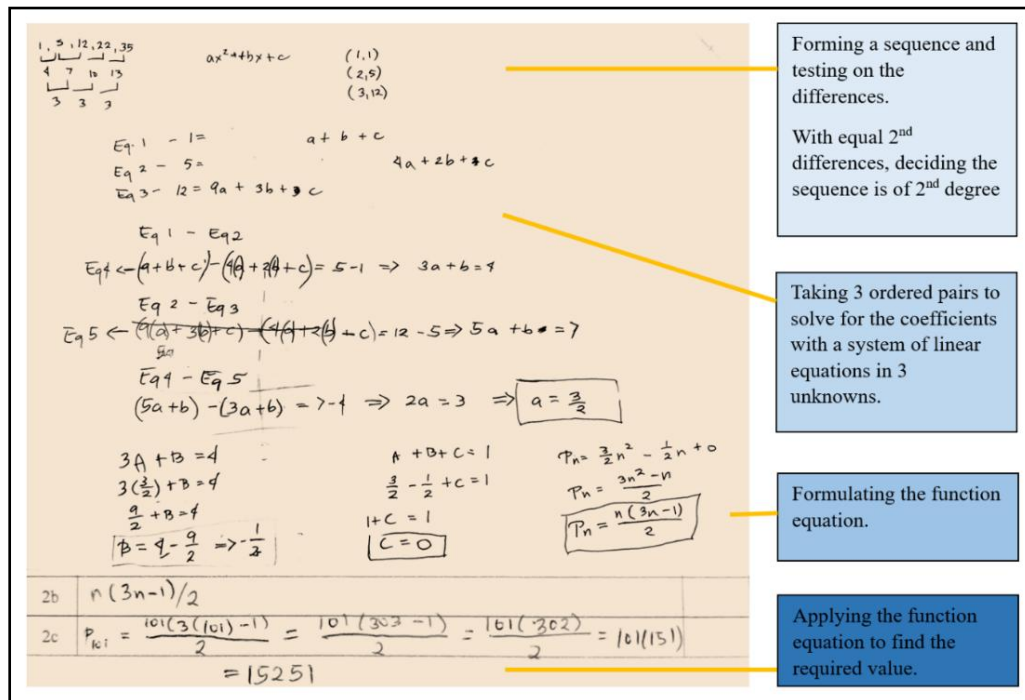 1, 5, 12, 22, 35
4 7 10 13
3 3 3
ax² + bx + c
(1,1)
(2,5)
(3,12)
Eq. 1 - 1 = a + b + c
Eq 2 - 5 = 4a + 2b + c
Eq 3 - 12 = 9a + 3b + c
Eq 1 - Eq 2
Eq 4 ← (a + b + c) - (4(a) + 2(b) + c) = 5 - 1 => 3a + b = 4
Eq 2 - Eq 3
Eq 5 ← (9(a) + 3(b) + c) - (4(a) + 2(b) + c) = 12 - 5 => 5a + b = 7
Eq 4 - Eq 5
(5a + b) - (3a + b) = 7 - 4 => 2a = 3 => a = 3/2
3A + B = 4
3(3/2) + B = 4
9/2 + B = 4
B = 4 - 9/2 => -1/2
A + B + C = 1
3/2 - 1/2 + c = 1
1 + C = 1
C = 0
Pn = 3/2 n² - 1/2 n + 0
Pn = 3n² - n / 2
Pn = n(3n - 1) / 2
2b n(3n-1)/2
2c P101 = 101(3(101) - 1) / 2 = 101(303 - 1) / 2 = 101(302) / 2 = 101(151)
= 15251
Forming a sequence and
testing on the
differences.
With equal 2nd
differences, deciding the
sequence is of 2nd degree
Taking 3 ordered pairs to
solve for the coefficients
with a system of linear
equations in 3
unknowns.
Formulating the function
equation.
Applying the function
equation to find the
required value.